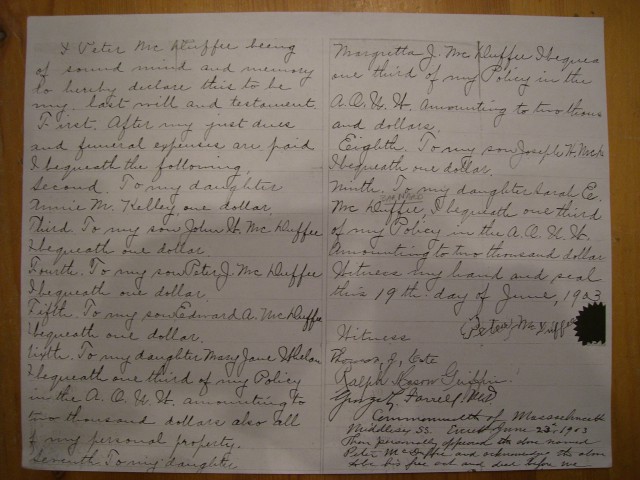 I Peter Mc Duffee being
of sound mind and memory
do hereby declare this to be
my last will and testament.
First. After my just dues
and funeral expenses are paid
I bequeath the following,
Second. To my daughter
Annie M. Kelley, one dollar.
Third. To my son John H. Mc Duffee
I bequeath one dollar.
Fourth. To my son Peter J. Mc Duffee
I bequeath one dollar.
Fifth. To my son Edward A. Mc Duffee
I bequeath one dollar.
Sixth. To my daughter Mary Jane Whelan
I bequeath one third of my Policy
in the A.O.U.W. amounting to
two thousand dollars also all
of my personal property.
Seventh To my daughter
Margretta J. Mc Duffee I bequea
one third of my Policy in the
A.O.U.W. Amounting to two thous
and dollars.
Eighth. To my son Joseph H. Mc
I bequeath one dollar.
Ninth. To my daughter Sarah E.
Mc Duffee, I bequeath one third
of my Policy in the A.O.U.W.
Amounting to two thousand dollar
Witness my hand and seal
this 19th day of June, 1903
Peter Mc Duffee
Witness
Thomas J.
Ralph Griffin
George L. Farrell M.D.
Commonwealth of Massachusetts
Middlesex SS. June 23, 1903
Then personally appeared the above named
Peter McDuffee and acknowledged the above
to be his free act and deed before me